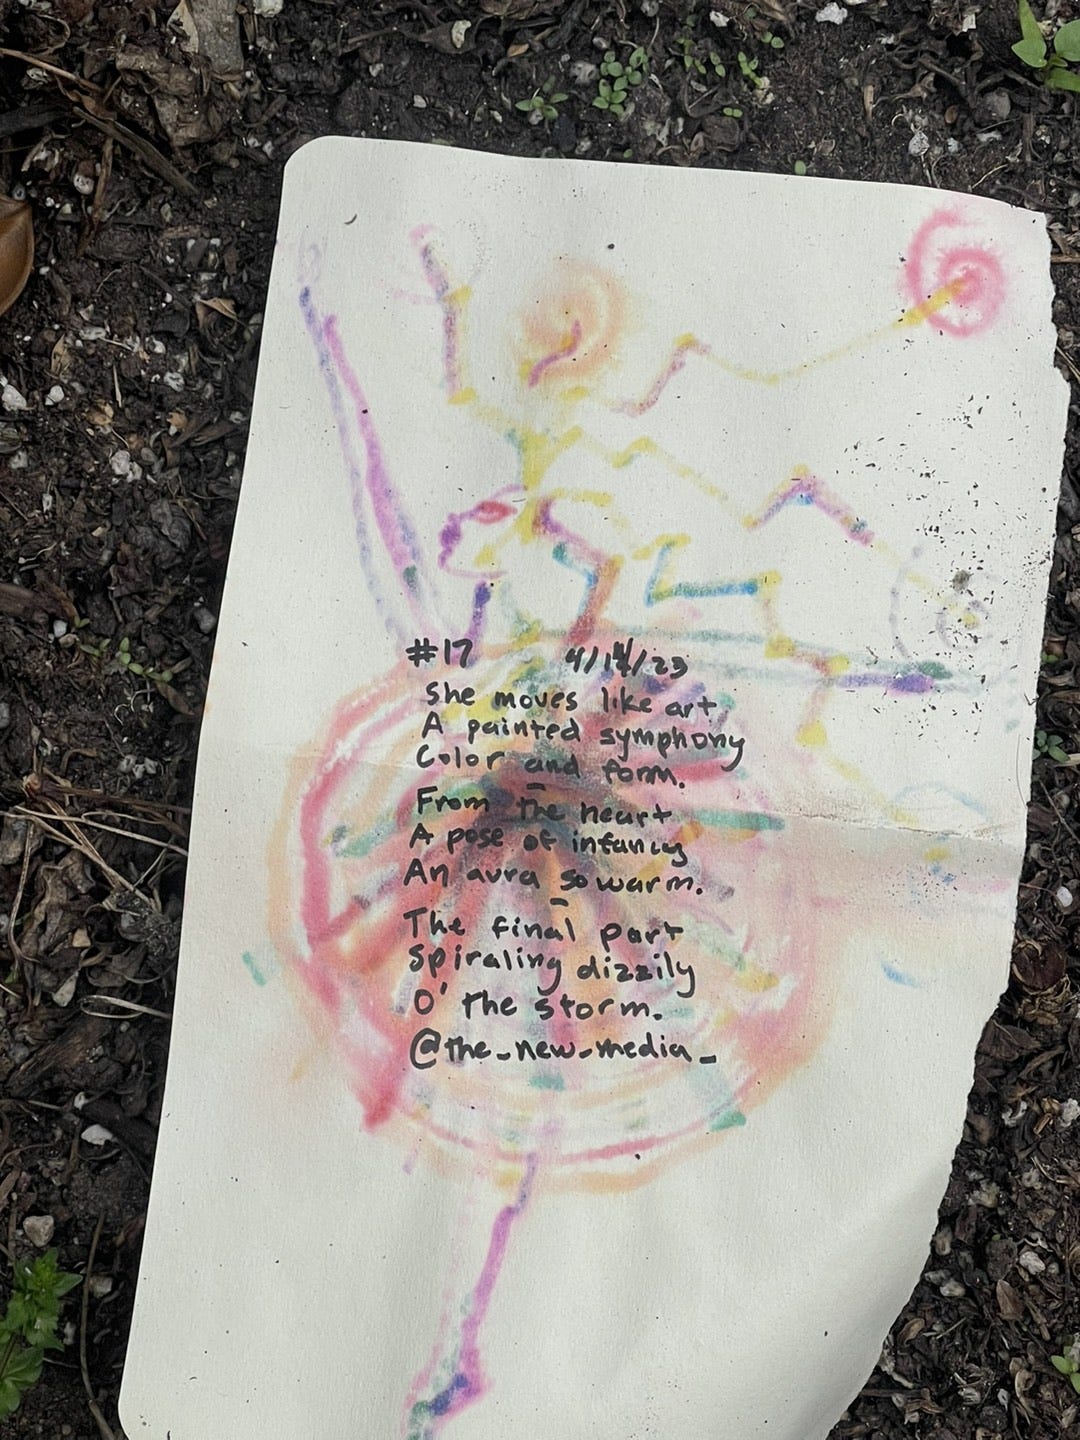 #17 4/14/23
She moves like art
A painted symphony
Color and form.
-
From the heart
A pose of infancy
An aura so warm.
-
The final part
Spiraling dizzily
O' the storm.
@the_new_media_